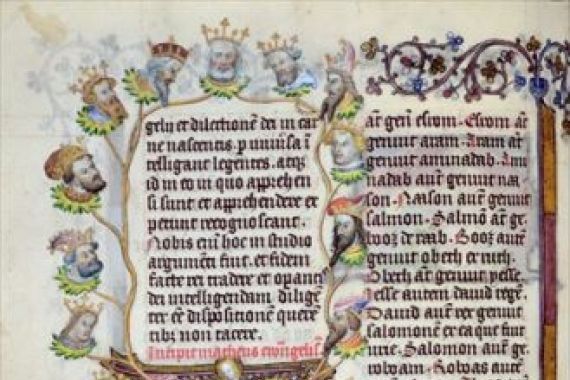 gelij et dilectionē dei in car
ne nascentis. p uniūsa ī
telligant legentes. atqꝫ
id in eo in quo apprehen
si sunt et apprehendere ex
petunt recognoscant.
Nobis enī hoc in studio
argumēti fuit. et fidem
facte rei tradere et opantis
dei intelligendam diligē
ter eē dispositionē querē
tibꝫ non tacere.
Incipit matheus ewangelist
aūt genuit esrom. Esrom aūt
genuit aram. Aram aūt
genuit aminadab. Ami
nadab aūt genuit naa
son. Naison aūt genuit
salmon. Salmō aūt ge.
booz de raab. Booz autē
genuit obeth ex ruth.
Obeth aūt genuit yesse.
Jesse autem dauid regē.
Dauid aūt rex genuit
salomonē ex ea que fuit
urie. Salomon aūt ge.
roboam. Roboas autē